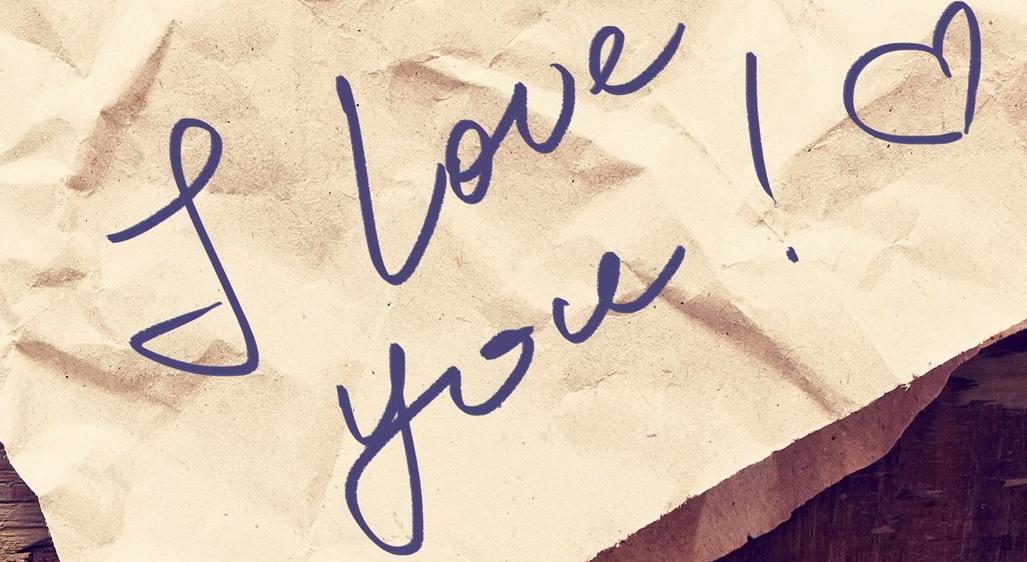 I Love
you! ♡